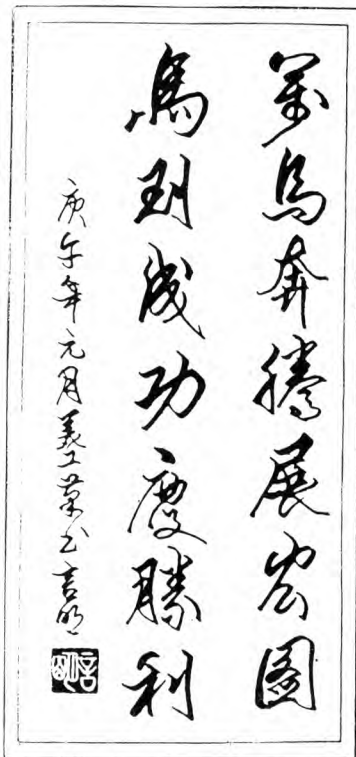 萬馬奔騰展宏圖
馬到成功慶勝利
庚午年元月義工